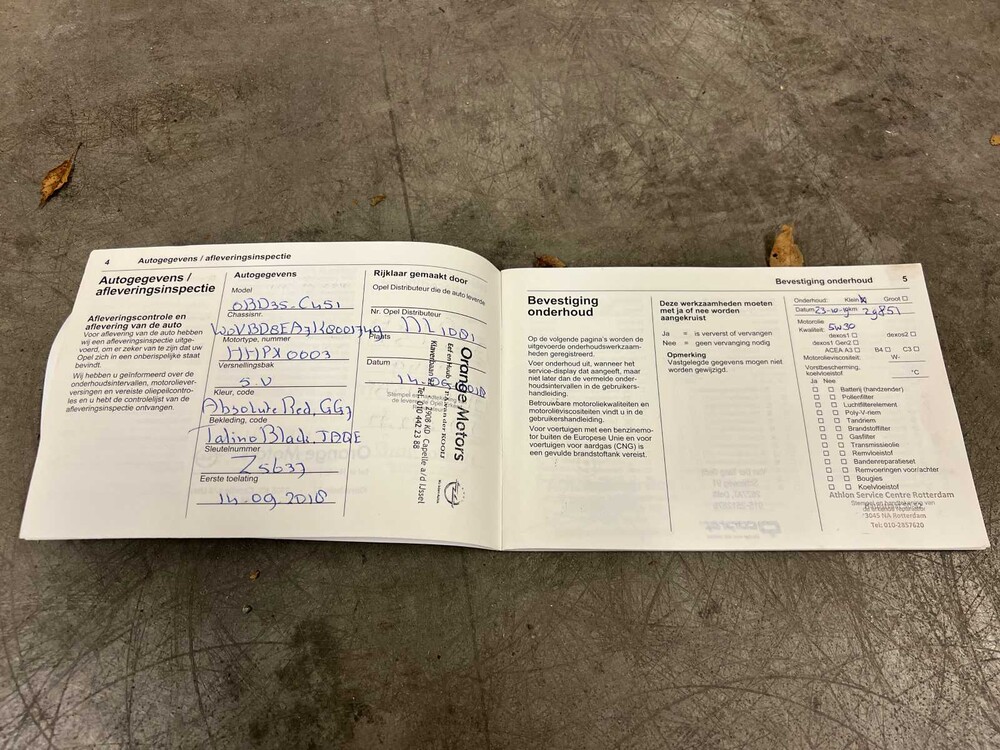 4 Autogegevens / afleveringsinspectie
Autogegevens /
afleveringsinspectie
Afleveringscontrole en
aflevering van de auto
Voor aflevering van de auto hebben
wij een afleveringsinspectie uitge-
voerd, om er zeker van te zijn dat uw
Opel zich in een onberispelijke staat
bevindt.
Wij hebben u geïnformeerd over de
onderhoudsintervallen, motoroliever-
versingen en vereiste oliepeilcontro-
les en u hebt de controlelijst van de
afleveringsinspectie ontvangen.
Autogegevens
Model
0BD35.CU51
Chassisnr.
Motortype, nummer
HHPX0003
Versnellingsbak
5.V
Kleur, code
Absolute Red, GG3
Bekleding, code
Talino Black,
Sleutelnummer
Z5637
Eerste toelating
14.09.2018
Rijklaar gemaakt door
Opel Distributeur die de auto leverde
Nr. Opel Distributeur
Plaats
Datum
Orange Motors
2908 KD Capelle a/d IJssel
Tel. 010 442 23 88
Bevestiging onderhoud 5
Bevestiging
onderhoud
Op de volgende pagina's worden de
uitgevoerde onderhoudswerkzaam-
heden geregistreerd.
Voer onderhoud uit, wanneer het
service-display dat aangeeft, maar
niet later dan de vermelde onder-
houdsintervallen in de gebruikers-
handleiding.
Betrouwbare motoroliekwaliteiten en
motorolieviscositeiten vindt u in de
gebruikershandleiding.
Voor voertuigen met een benzinemo-
tor buiten de Europese Unie en voor
voertuigen voor aardgas (CNG) is
een gevulde brandstoftank vereist.
Deze werkzaamheden moeten
met ja of nee worden
aangekruist
Ja = is ververst of vervangen
Nee = geen vervanging nodig
Opmerking
Vastgelegde gegevens mogen niet
worden gewijzigd.
Onderhoud: Klein Groot
Datum 23-10-19 km 29851
Motorolie
Kwaliteit: 5W30
dexos1 dexos2
dexos1 Gen2
ACEA A3 B4 C3
Motorolieviscositeit: W-
Vorstbescherming,
koelvloeistof °C
Ja Nee
Batterij (handzender)
Pollenfilter
Luchtfilterelement
Poly-V-riem
Tandriem
Brandstoffilter
Gasfilter
Transmissieolie
Remvloeistof
Bandenreparatieset
Remvoeringen voor/achter
Bougies
Koelvloeistof
Athlon Service Centre Rotterdam
Stempel en handtekening van
de erkende reparateur
3045 NA Rotterdam
Tel: 010-2857620